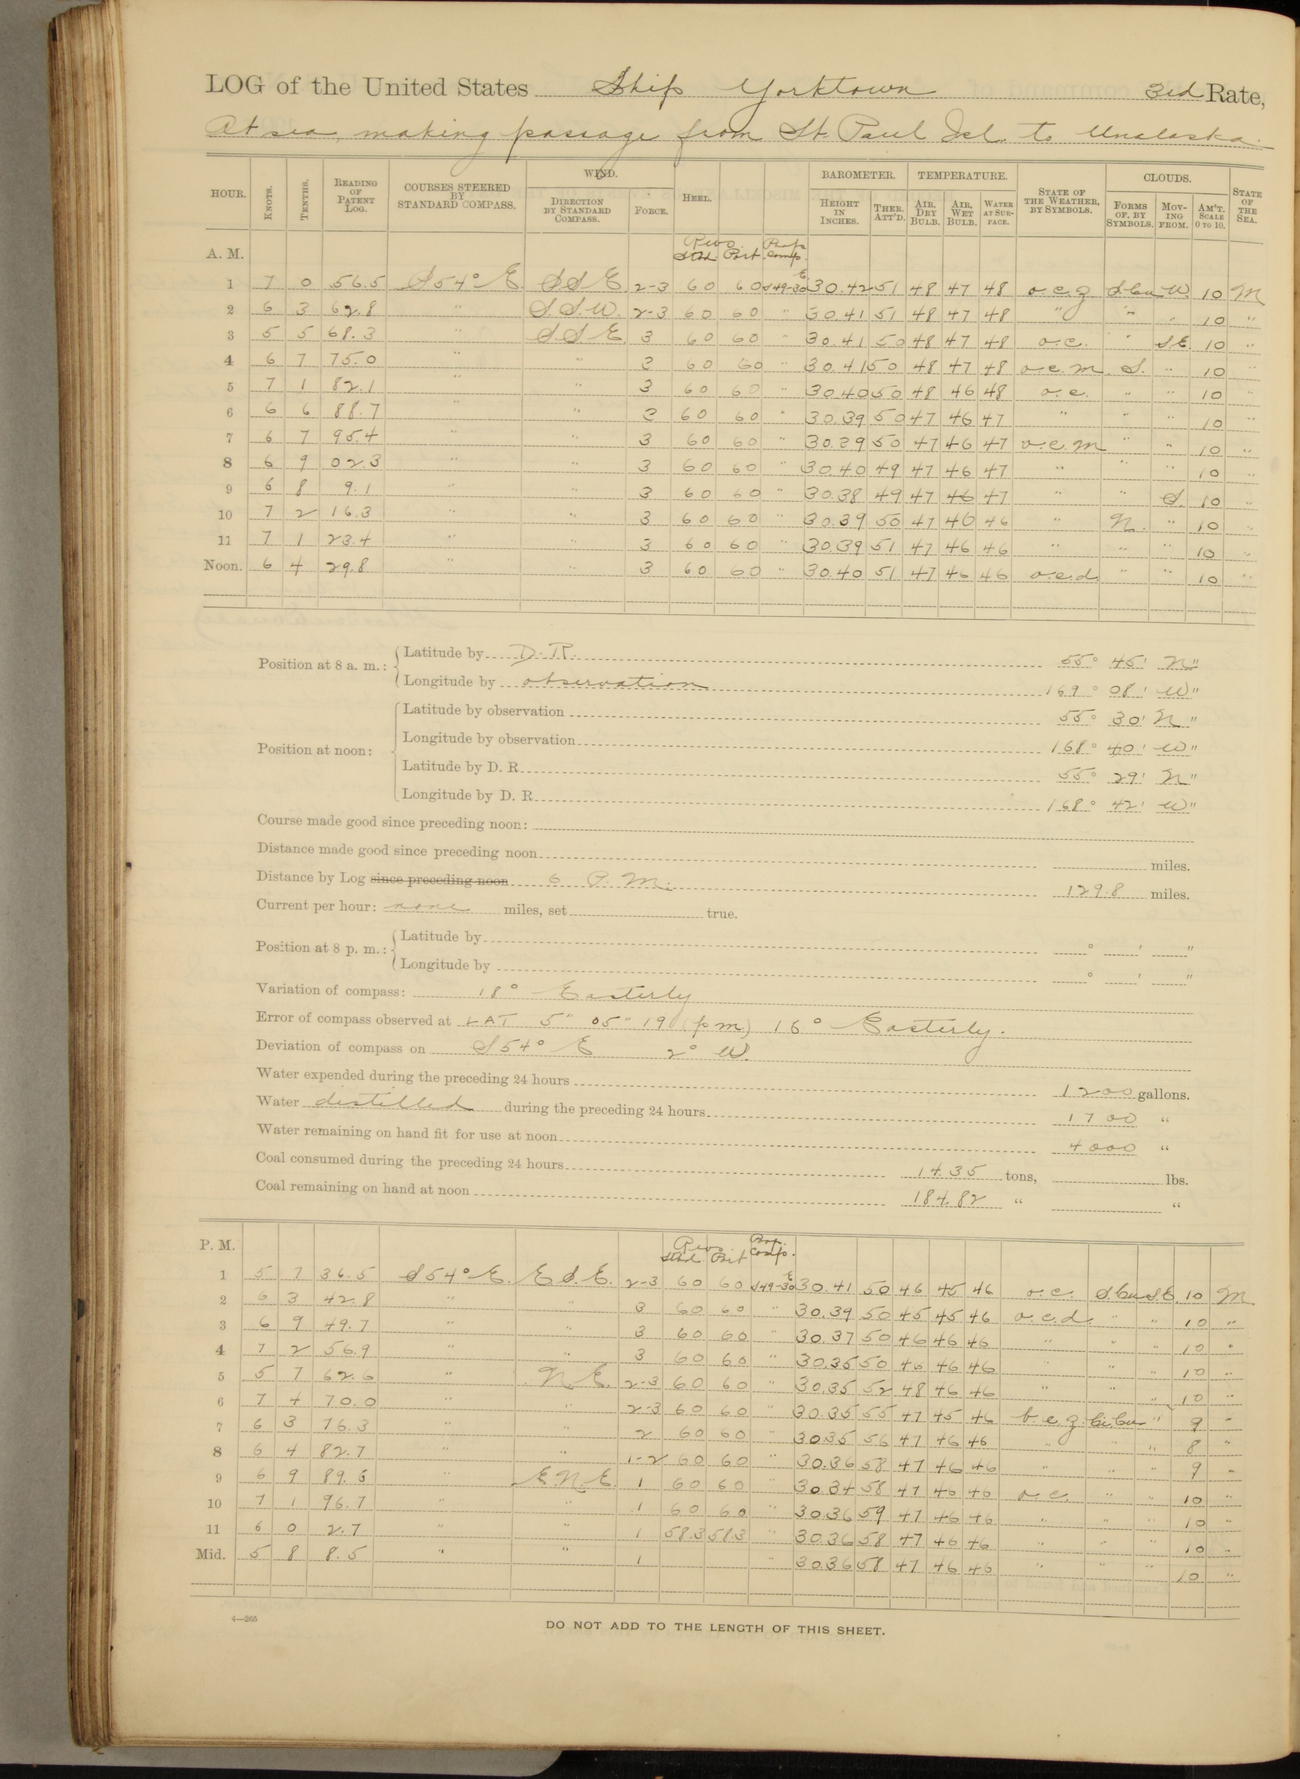 LOG of the United States Ship Yorktown 3rd Rate,
At sea, making passage from St. Paul Isl. to Unalaska.
HOUR. KNOTS. TENTHS. READING OF PATENT LOG. COURSES STEERED BY STANDARD COMPASS. WIND. DIRECTION BY STANDARD COMPASS. FORCE. HEEL. BAROMETER. HEIGHT IN INCHES. THER. ATT'D. TEMPERATURE. AIR, DRY BULB. AIR, WET BULB. WATER AT SURFACE. STATE OF THE WEATHER, BY SYMBOLS. CLOUDS. FORMS OF, BY SYMBOLS. MOVING FROM. AM'T. SCALE 0 TO 10. STATE OF THE SEA.
A. M. Revs. Stbd Port Prop. Comp.
1 7 0 56.5 S 54° E S S E 2-3 60 60 S49-30 E 30.42 51 48 47 48 o.c.g S.Cu W. 10 M
2 6 3 62.8 " S S W. 2-3 60 60 " 30.41 51 48 47 48 " " " 10 "
3 5 5 68.3 " S S E 3 60 60 " 30.41 50 48 47 48 o.c. " S.E. 10 "
4 6 7 75.0 " " 3 60 60 " 30.41 50 48 47 48 o.c.m S. " 10 "
5 7 1 82.1 " " 3 60 60 " 30.40 50 48 46 48 o.c. " " 10 "
6 6 6 88.7 " " 3 60 60 " 30.39 50 47 46 47 " " " 10 "
7 6 7 95.4 " " 3 60 60 " 30.39 50 47 46 47 o.c.m " " 10 "
8 6 9 02.3 " " 3 60 60 " 30.40 49 47 46 47 " " " 10 "
9 6 8 9.1 " " 3 60 60 " 30.38 49 47 46 47 " " S. 10 "
10 7 2 16.3 " " 3 60 60 " 30.39 50 47 46 46 " N. " 10 "
11 7 1 23.4 " " 3 60 60 " 30.39 51 47 46 46 " " " 10 "
Noon. 6 4 29.8 " " 3 60 60 " 30.40 51 47 46 46 o.c.d. " " 10 "
Position at 8 a. m.: Latitude by D. R. 55° 45' N"
Longitude by observation 169° 08' W"
Position at noon: Latitude by observation 55° 30' N"
Longitude by observation 168° 40' W"
Latitude by D. R. 55° 29' N"
Longitude by D. R. 168° 42' W"
Course made good since preceding noon:
Distance made good since preceding noon miles.
Distance by Log since preceding noon 6 P. M. 129.8 miles.
Current per hour: none miles, set true.
Position at 8 p. m.: Latitude by ° ' "
Longitude by ° ' "
Variation of compass: 18° Easterly
Error of compass observed at LAT 5" 05" 19 (p m) 16° Easterly.
Deviation of compass on S 54° E 2° W.
Water expended during the preceding 24 hours 1200 gallons.
Water distilled during the preceding 24 hours 1700 "
Water remaining on hand fit for use at noon 4000 "
Coal consumed during the preceding 24 hours 14.35 tons, lbs.
Coal remaining on hand at noon 184.82 " "
P. M. Revs. Stbd Port Prop. Comp.
1 5 7 36.5 S 54° E. E S. E. 2-3 60 60 S49-30 E 30.41 50 46 45 46 o.c. S.Cu S.E. 10 M.
2 6 3 42.8 " " 3 60 60 " 30.39 50 45 45 46 o.c.d. " " 10 "
3 6 9 49.7 " " 3 60 60 " 30.37 50 46 46 46 " " " 10 "
4 7 2 56.9 " " 3 60 60 " 30.35 50 46 46 46 " " " 10 "
5 5 7 62.6 " N E. 2-3 60 60 " 30.35 52 48 46 46 " " " 10 "
6 7 4 70.0 " " 2-3 60 60 " 30.35 55 47 45 46 b.c.g. Ci.Cu " 9 "
7 6 3 76.3 " " 2 60 60 " 30.35 56 47 46 46 " " " 8 "
8 6 4 82.7 " " 1-2 60 60 " 30.36 58 47 46 46 " " " 9 "
9 6 9 89.6 " E. N. E. 1 60 60 " 30.34 58 47 46 46 o.c. " " 10 "
10 7 1 96.7 " " 1 60 60 " 30.36 59 47 46 46 " " " 10 "
11 6 0 2.7 " " 1 58.3 58.3 " 30.36 58 47 46 46 " " " 10 "
Mid. 5 8 8.5 " " 1 " 30.36 58 47 46 46 " " " 10 "
4—265
DO NOT ADD TO THE LENGTH OF THIS SHEET.